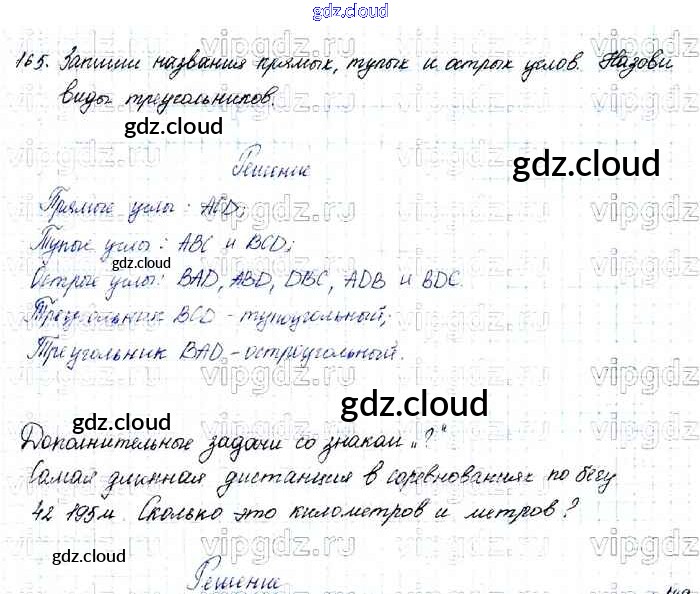 gdz.cloud
165. Запиши названия прямых, тупых и острых углов. Назови
виды треугольников.
gdz.cloud
Решение
gdz.cloud
Прямые углы: ACD;
Тупые углы: ABC и BCD;
gdz.cloud
Острые углы: BAD, ABD, DBC, ADB и BDC.
Треугольник BCD - тупоугольный;
Треугольник BAD - остроугольный.
gdz.cloud
gdz.cloud
Дополнительные задачи со знаком „?“
Самая длинная дистанция в соревнованиях по бегу
42 195м. Сколько это километров и метров?
gdz.cloud
gdz.cloud
Решение